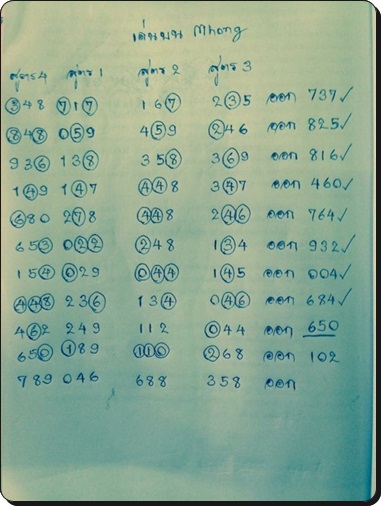 เด่นบน Mhong
สูตร 4 สูตร 1 สูตร 2 สูตร 3
348 717 167 235 ออก 737 ✓
848 059 459 246 ออก 825 ✓
936 138 358 369 ออก 816 ✓
149 147 448 347 ออก 460 ✓
680 278 448 246 ออก 764 ✓
653 022 248 134 ออก 932 ✓
154 029 044 145 ออก 004 ✓
448 236 134 046 ออก 684 ✓
462 249 112 044 ออก 650
650 189 110 268 ออก 102
789 046 688 358 ออก